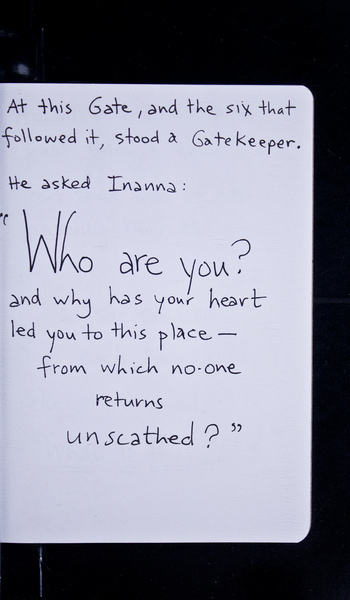 At this Gate, and the six that
followed it, stood a Gatekeeper.
He asked Inanna:
"Who are you?
and why has your heart
led you to this place —
from which no-one
returns
unscathed?"